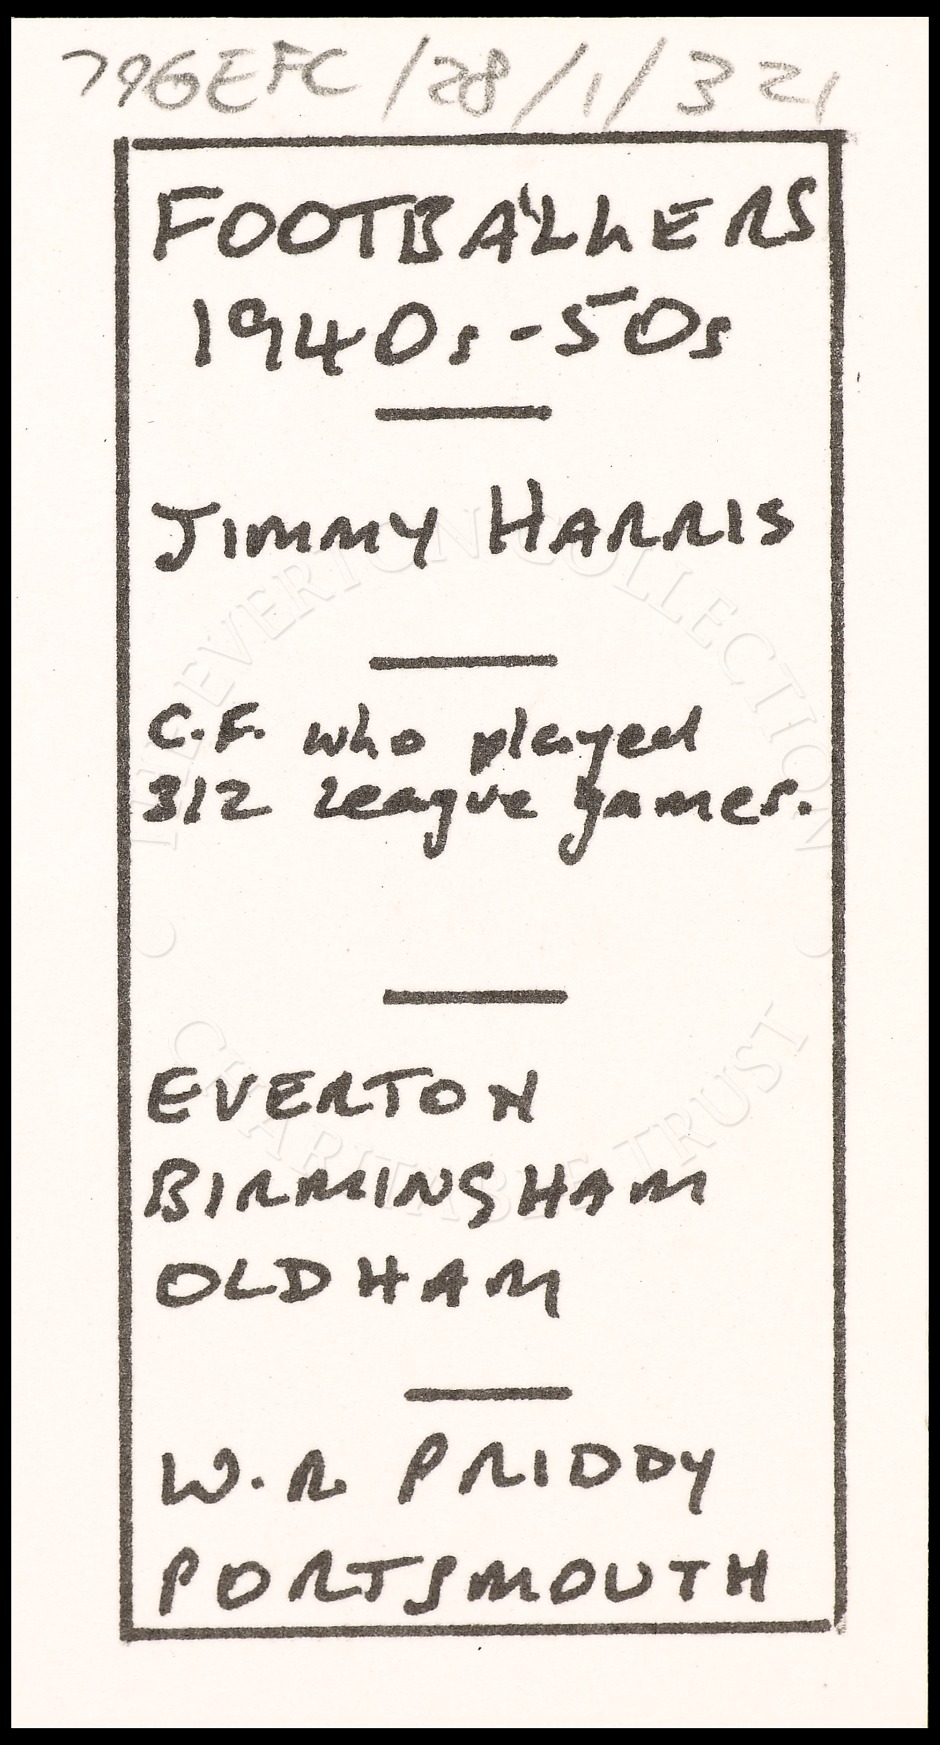 796EFC/28/1/321
FOOTBALLERS
1940s-50s
JIMMY HARRIS
C.F. who played
312 league games.
EVERTON
BIRMINGHAM
OLDHAM
W.R. PRIDDY
PORTSMOUTH
THE EVERTON COLLECTION
CHARITABLE TRUST